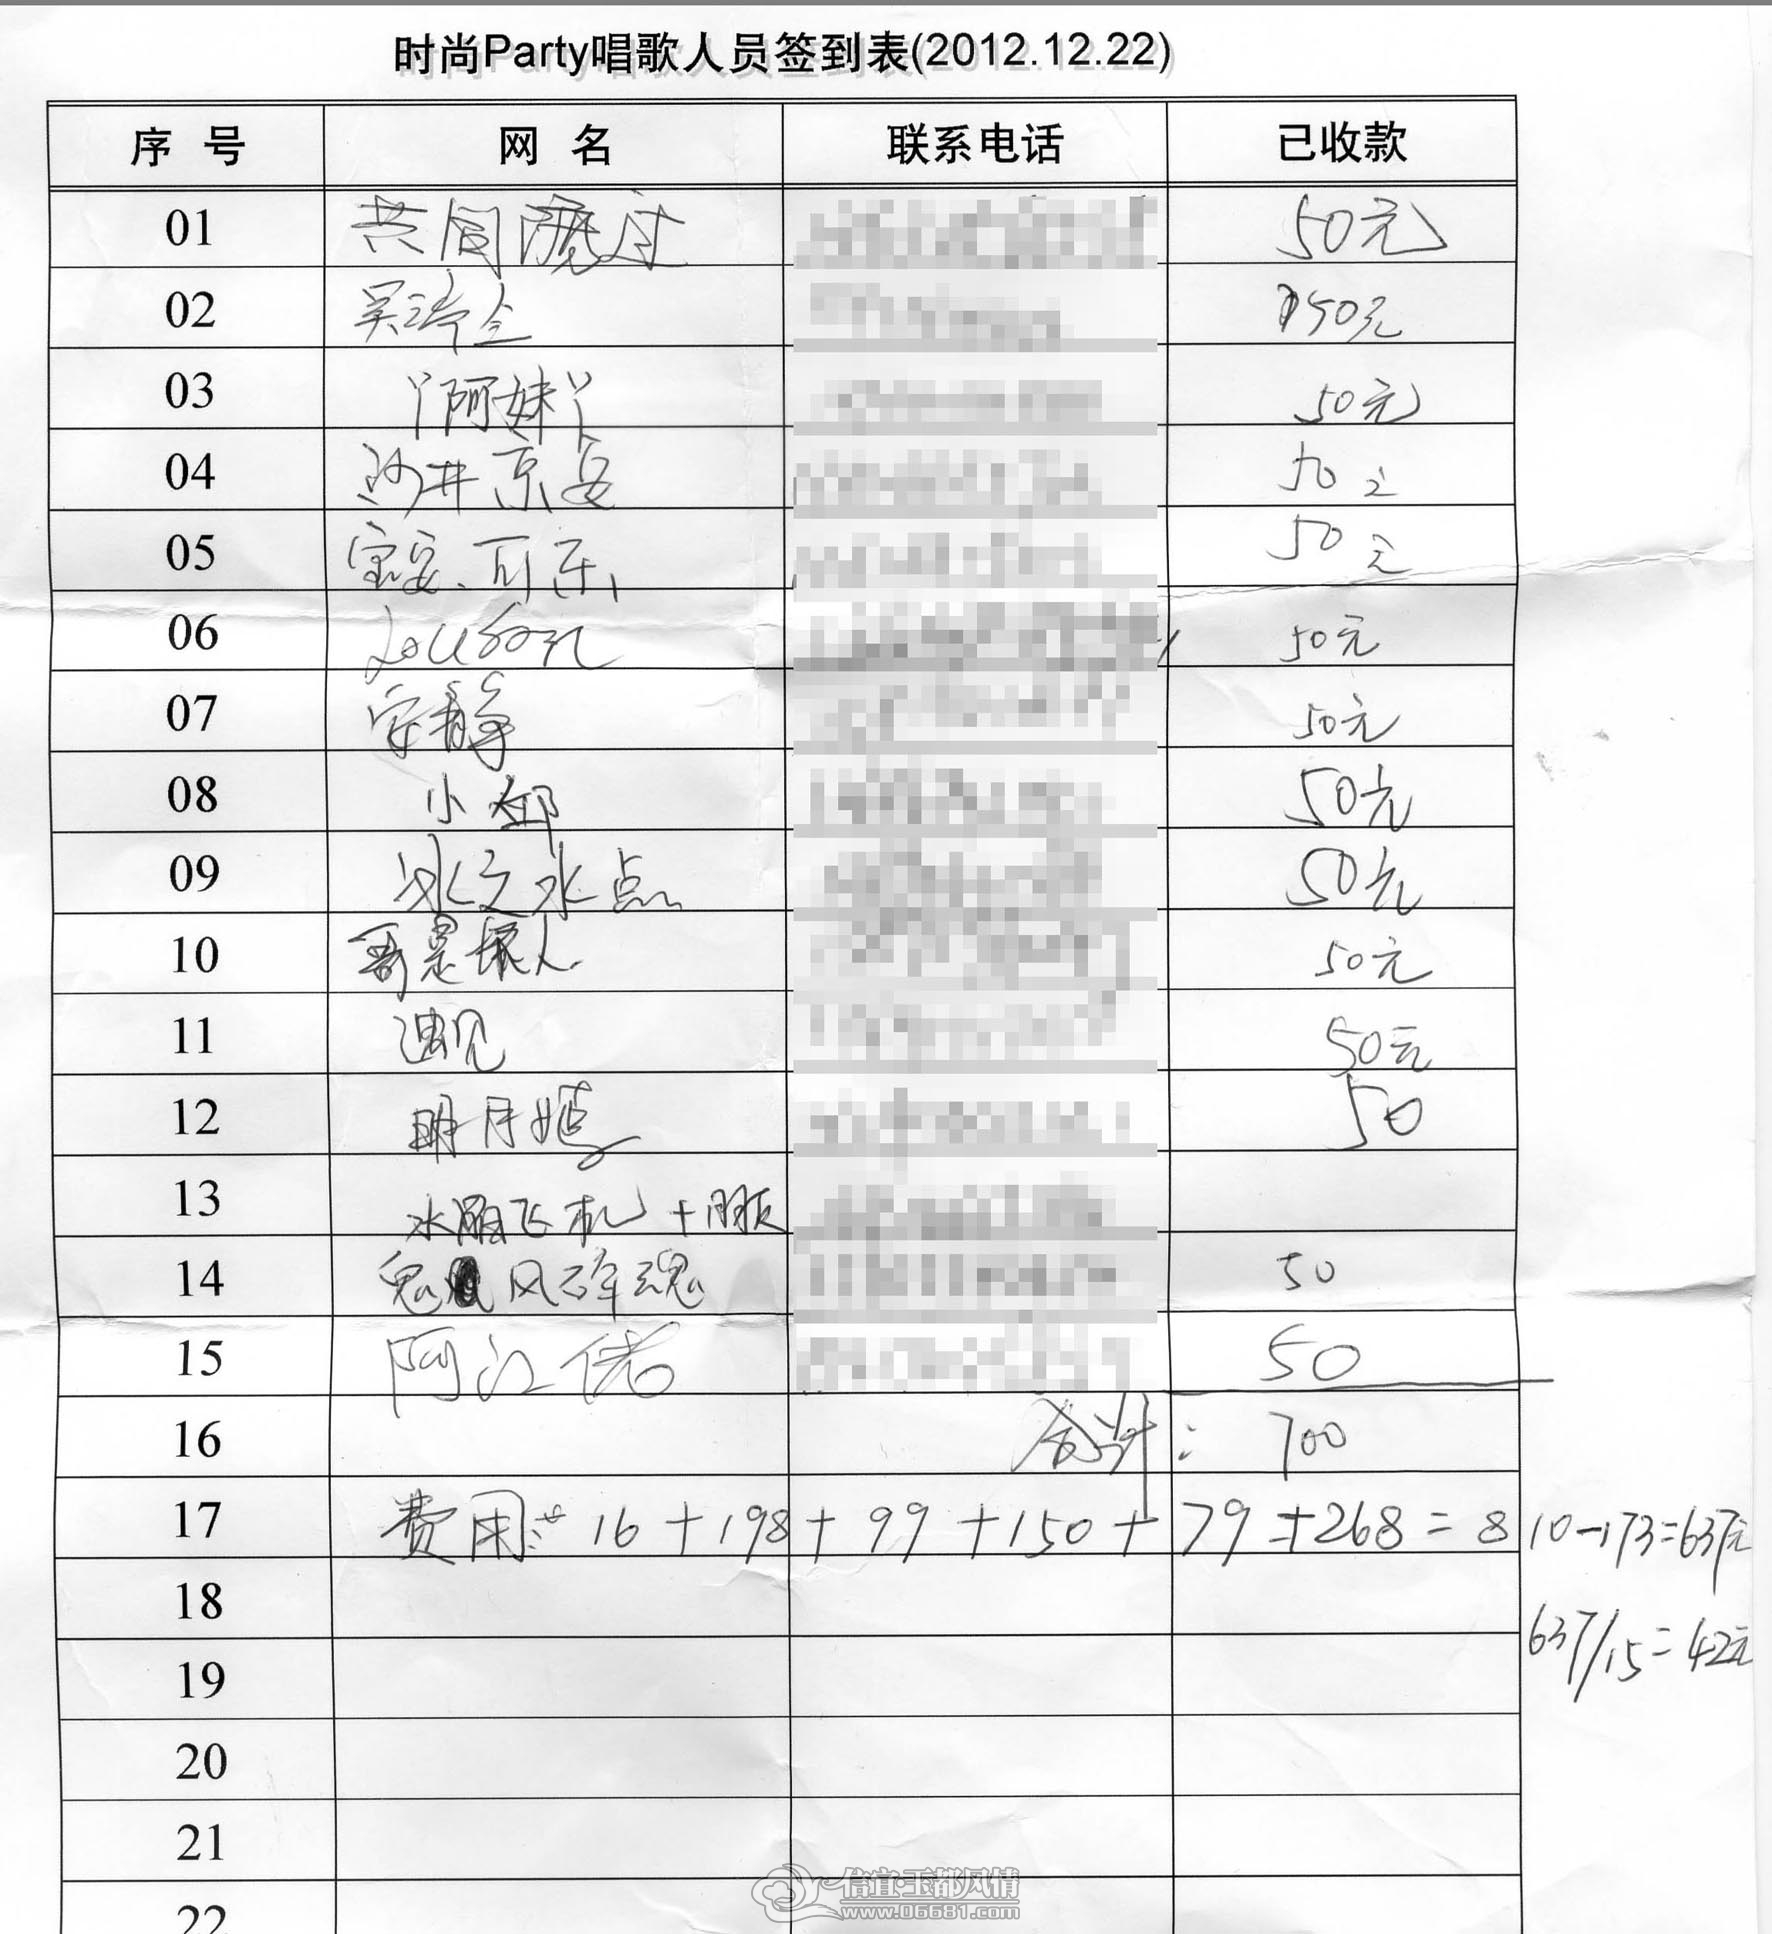 时尚Party唱歌人员签到表(2012.12.22)
序 号 网 名 联系电话 已收款
01 共同 过 50元
02 吴 50元
03 丫阿妹丫 50元
04 沙井京安 50元
05 宝安、可乐 50元
06 50元
07 安静 50元
08 小邹 50元
09 冰之水点 50元
10 哥是坏人. 50元
11 遇见 50元
12 明月姬 50
13 水晶飞机+朋友
14 鬼 风碎魂 50
15 阿江佬 50
16 合计: 700
17 费用: 16+198+99+150+79+268=810-173=637元
18 637/15=42元
19
20
21
22
信宜·玉都风情
www.06681.com